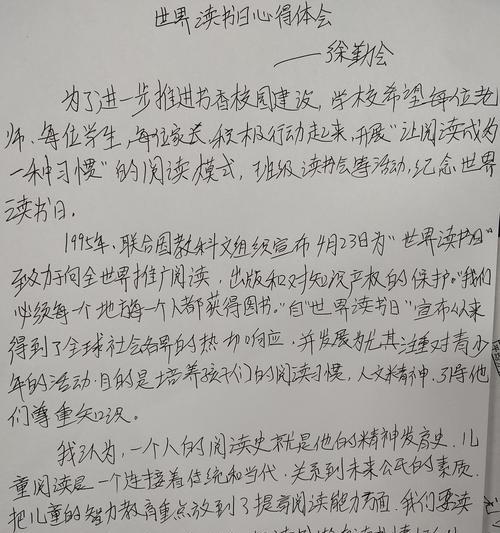 世界读书日心得体会
——徐勤会
为了进一步推进书香校园建设，学校希望每位老
师、每位学生，每位家长，积极行动起来，开展"让阅读成为
一种习惯"的阅读模式，班级读书会等活动，纪念世界
读书日。
1995年，联合国教科文组织宣布4月23日为"世界读书日"
致力于向全世界推广阅读、出版和对知识产权的保护。"我们
必须每一个地方每一个人都获得图书。"自"世界读书日"宣布以来
得到了全球社会各界的热切响应，并发展为尤其注重对青少
年的活动。目的是培养孩子们的阅读习惯，人文精神，引导他
们尊重知识。
我认为，一个人的阅读史就是他的精神发育史，儿
童阅读是一个连接着传统和当代、关系到未来公民的素质
把儿童的智力教育重点放到了提高阅读能力方面，我们要读